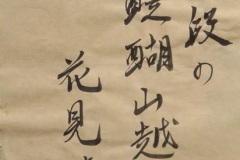 段の
醍醐山越
花見